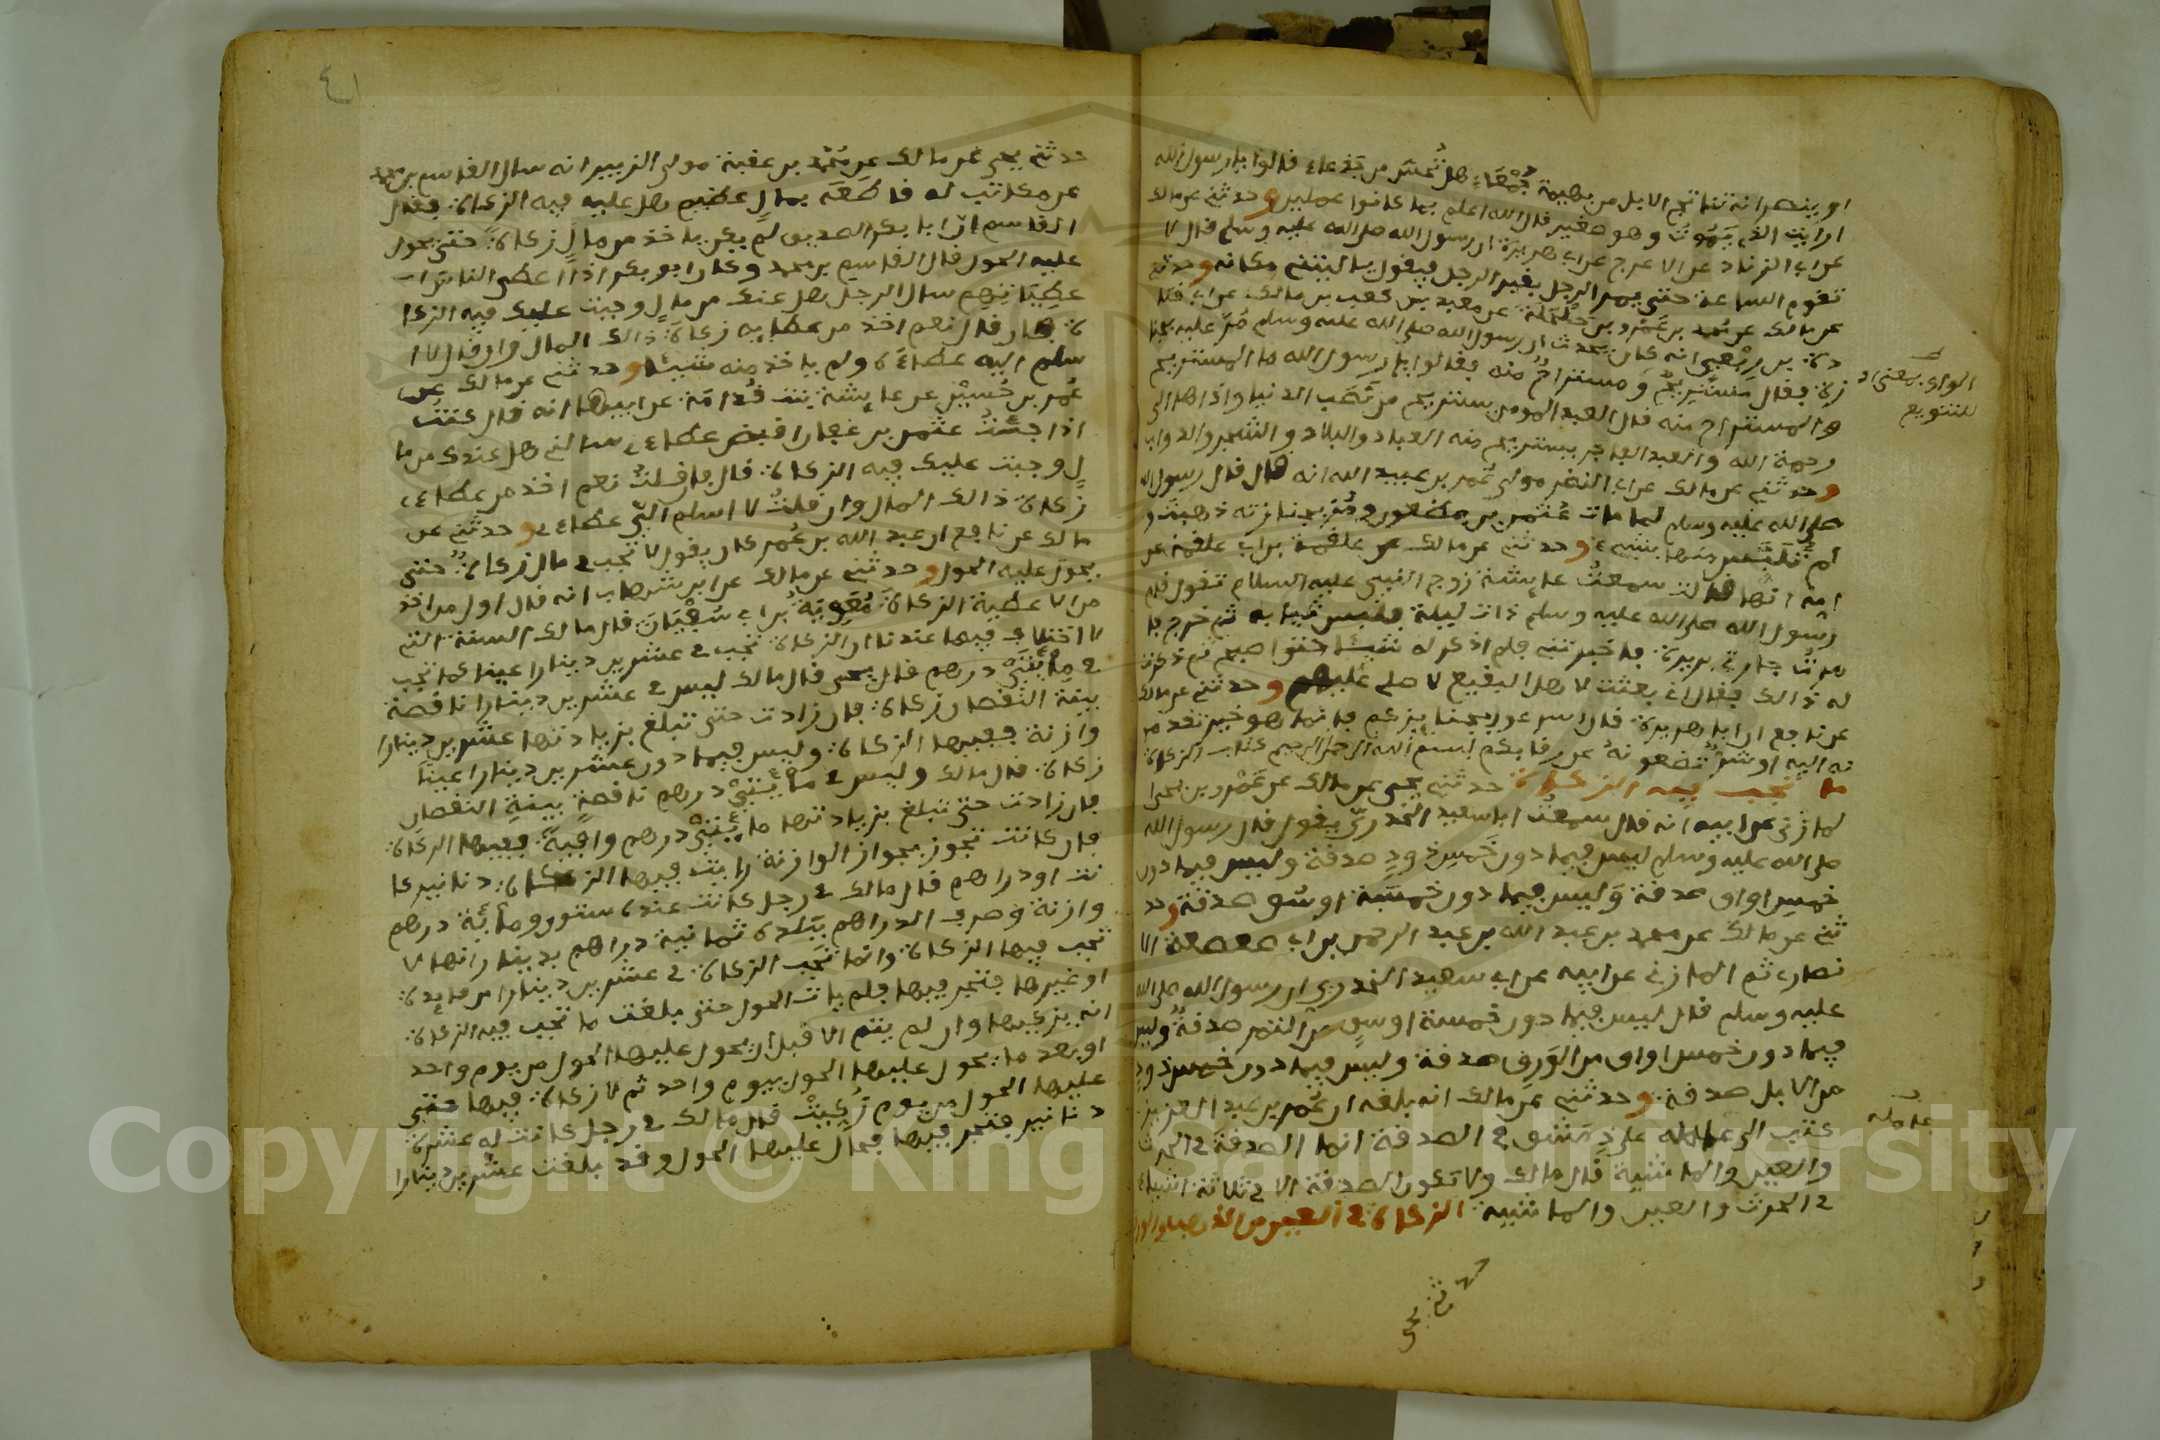 او ينصرانه كما تناتج الابل من بهيمة جمعاء هل تحس من جدعاء قالوا يا رسول الله
ارايت الذي يموت وهو صغير قال الله اعلم بما كانوا عملين وحدثني عن مالك
عن ابي الزناد عن الاعرج عن ابي هريرة ان رسول الله صلى الله عليه وسلم قال لا
تقوم الساعة حتى يمر الرجل بقبر الرجل فيقول يا ليتني مكانه وحدثني
عن مالك عن محمد بن عمرو بن حلحلة عن معبد بن كعب بن مالك عن ابي قتا
دة بن ربعي انه كان يحدث ان رسول الله صلى الله عليه وسلم مر عليه بجنا
زة فقال مستريح ومستراح منه فقالوا يا رسول الله ما المستريح
والمستراح منه قال العبد المومن يستريح من نصب الدنيا واذاها الى
رحمة الله والعبد الفاجر يستريح منه العباد والبلاد والشجر والدواب
وحدثني عن مالك عن ابي النضر مولى عمر بن عبيد الله انه قال قال رسول الله
صلى الله عليه وسلم لما مات عثمن بن مظعون ومر بجنازته ذهبت و
لم تلبس منها بشيء وحدثني عن مالك عن علقمة بن ابي علقمة عن
امه انها قالت سمعت عايشة زوج النبي عليه السلام تقول قام
رسول الله صلى الله عليه وسلم ذات ليلة فلبس ثيابه ثم خرج فا
مرت جارتي بريرة فاخبرتني فلم اذكر له شيئا حتى اصبح ثم ذكرت
له ذالك فقال اني بعثت لاهل البقيع لاصلي عليهم وحدثني عن مالك
عن نافع ان ابا هريرة قال اسرعوا بجنايزكم فانما هو خير تقدمو
نه اليه او شر تضعونه عن رقابكم بسم الله الرحمن الرحيم كتاب الزكاة
ما تجب فيه الزكاة حدثني يحيى عن مالك عن عمرو بن يحيى
المازني عن ابيه انه قال سمعت ابا سعيد الخدري يقول قال رسول الله
صلى الله عليه وسلم ليس فيما دون خمس ذود صدقة وليس فيما دون
خمس اواق صدقة وليس فيما دون خمسة اوسق صدقة وحد
ثني عن مالك عن محمد بن عبد الله بن عبد الرحمن بن ابي صعصعة الا
نصاري ثم المازني عن ابيه عن ابي سعيد الخدري ان رسول الله صلى الله
عليه وسلم قال ليس فيما دون خمسة اوسق من التمر صدقة وليس
فيما دون خمس اواق من الورق صدقة وليس فيما دون خمس ذود
من الابل صدقة وحدثني عن مالك انه بلغه ان عمر بن عبد العزيز
كتب الى عامله على دمشق في الصدقة انما الصدقة في الحرث
والعين والماشية قال مالك ولا تكون الصدقة الا في ثلاثة اشياء
في الحرث والعين والماشية الزكاة في العين من الذهب والورق
حدثني يحيى
الواو بمعنى او
للتنويع
عامله
٤١
حدثني يحيى عن مالك عن محمد بن عقبة مولى الزبير انه سال القاسم بن محمد
عن مكاتب له قاطعه بمال عظيم هل عليه فيه الزكاة فقال
القاسم ان ابا بكر الصديق لم يكن ياخذ من مال زكاة حتى يحول
عليه الحول قال القاسم بن محمد وكان ابو بكر اذا اعطى الناس ا
عطياتهم سال الرجل هل عندك من مال وجبت عليك فيه الزكا
ة فان قال نعم اخذ من عطايه زكاة ذالك المال وان قال لا ا
سلم اليه عطاءه ولم ياخذ منه شيئا وحدثني عن مالك عن
عمر بن حسين عن عايشة بنت قدامة عن ابيها انه قال كنت
اذا جئت عثمن بن عفان اقبض عطاءي سالني هل عندك من ما
ل وجبت عليك فيه الزكاة قال فان قلت نعم اخذ من عطاءي
زكاة ذالك المال وان قلت لا اسلم الي عطاءي وحدثني عن
مالك عن نافع ان عبد الله بن عمر كان يقول لا تجب في مال زكاة حتى
يحول عليه الحول وحدثني عن مالك عن ابن شهاب انه قال اول من اخذ
من الاعطية الزكاة معوية بن ابي سفين قال مالك السنة التي
لا اختلاف فيها عندنا ان الزكاة تجب في عشرين دينارا عينا كما تجب
في مائتي درهم قال يحيى قال مالك ليس في عشرين دينارا ناقصة
بينة النقصان زكاة فان زادت حتى تبلغ بزيادتها عشرين دينارا
وازنة ففيها الزكاة وليس فيما دون عشرين دينارا عينا
زكاة قال مالك وليس في مائتي درهم ناقصة بينة النقصان
فان زادت حتى تبلغ بزيادتها مائتي درهم وافية ففيها الزكاة
فان كانت تجوز بجواز الوازنة رايت فيها الزكاة دنانير كا
نت او دراهم قال مالك في رجل كانت عنده ستون ومائة درهم
وازنة وصرف الدراهم ببلده ثمانية دراهم بدينار انها لا
تجب فيها الزكاة وانما تجب الزكاة في عشرين دينارا من فايدة
او غيرها فتجر فيها فلم يات الحول حتى بلغت ما تجب فيه الزكاة
انه يزكيها وان لم يتم الا قبل ان يحول عليها الحول من يوم واحد
او بعد ما يحول عليها الحول بيوم واحد ثم لا زكاة فيها حتى
عليها الحول من يوم زكيت قال مالك في رجل كانت له عشرة
دنانير فتجر فيها فحال عليها الحول وقد بلغت عشرين دينارا
Copyright © King Saud University